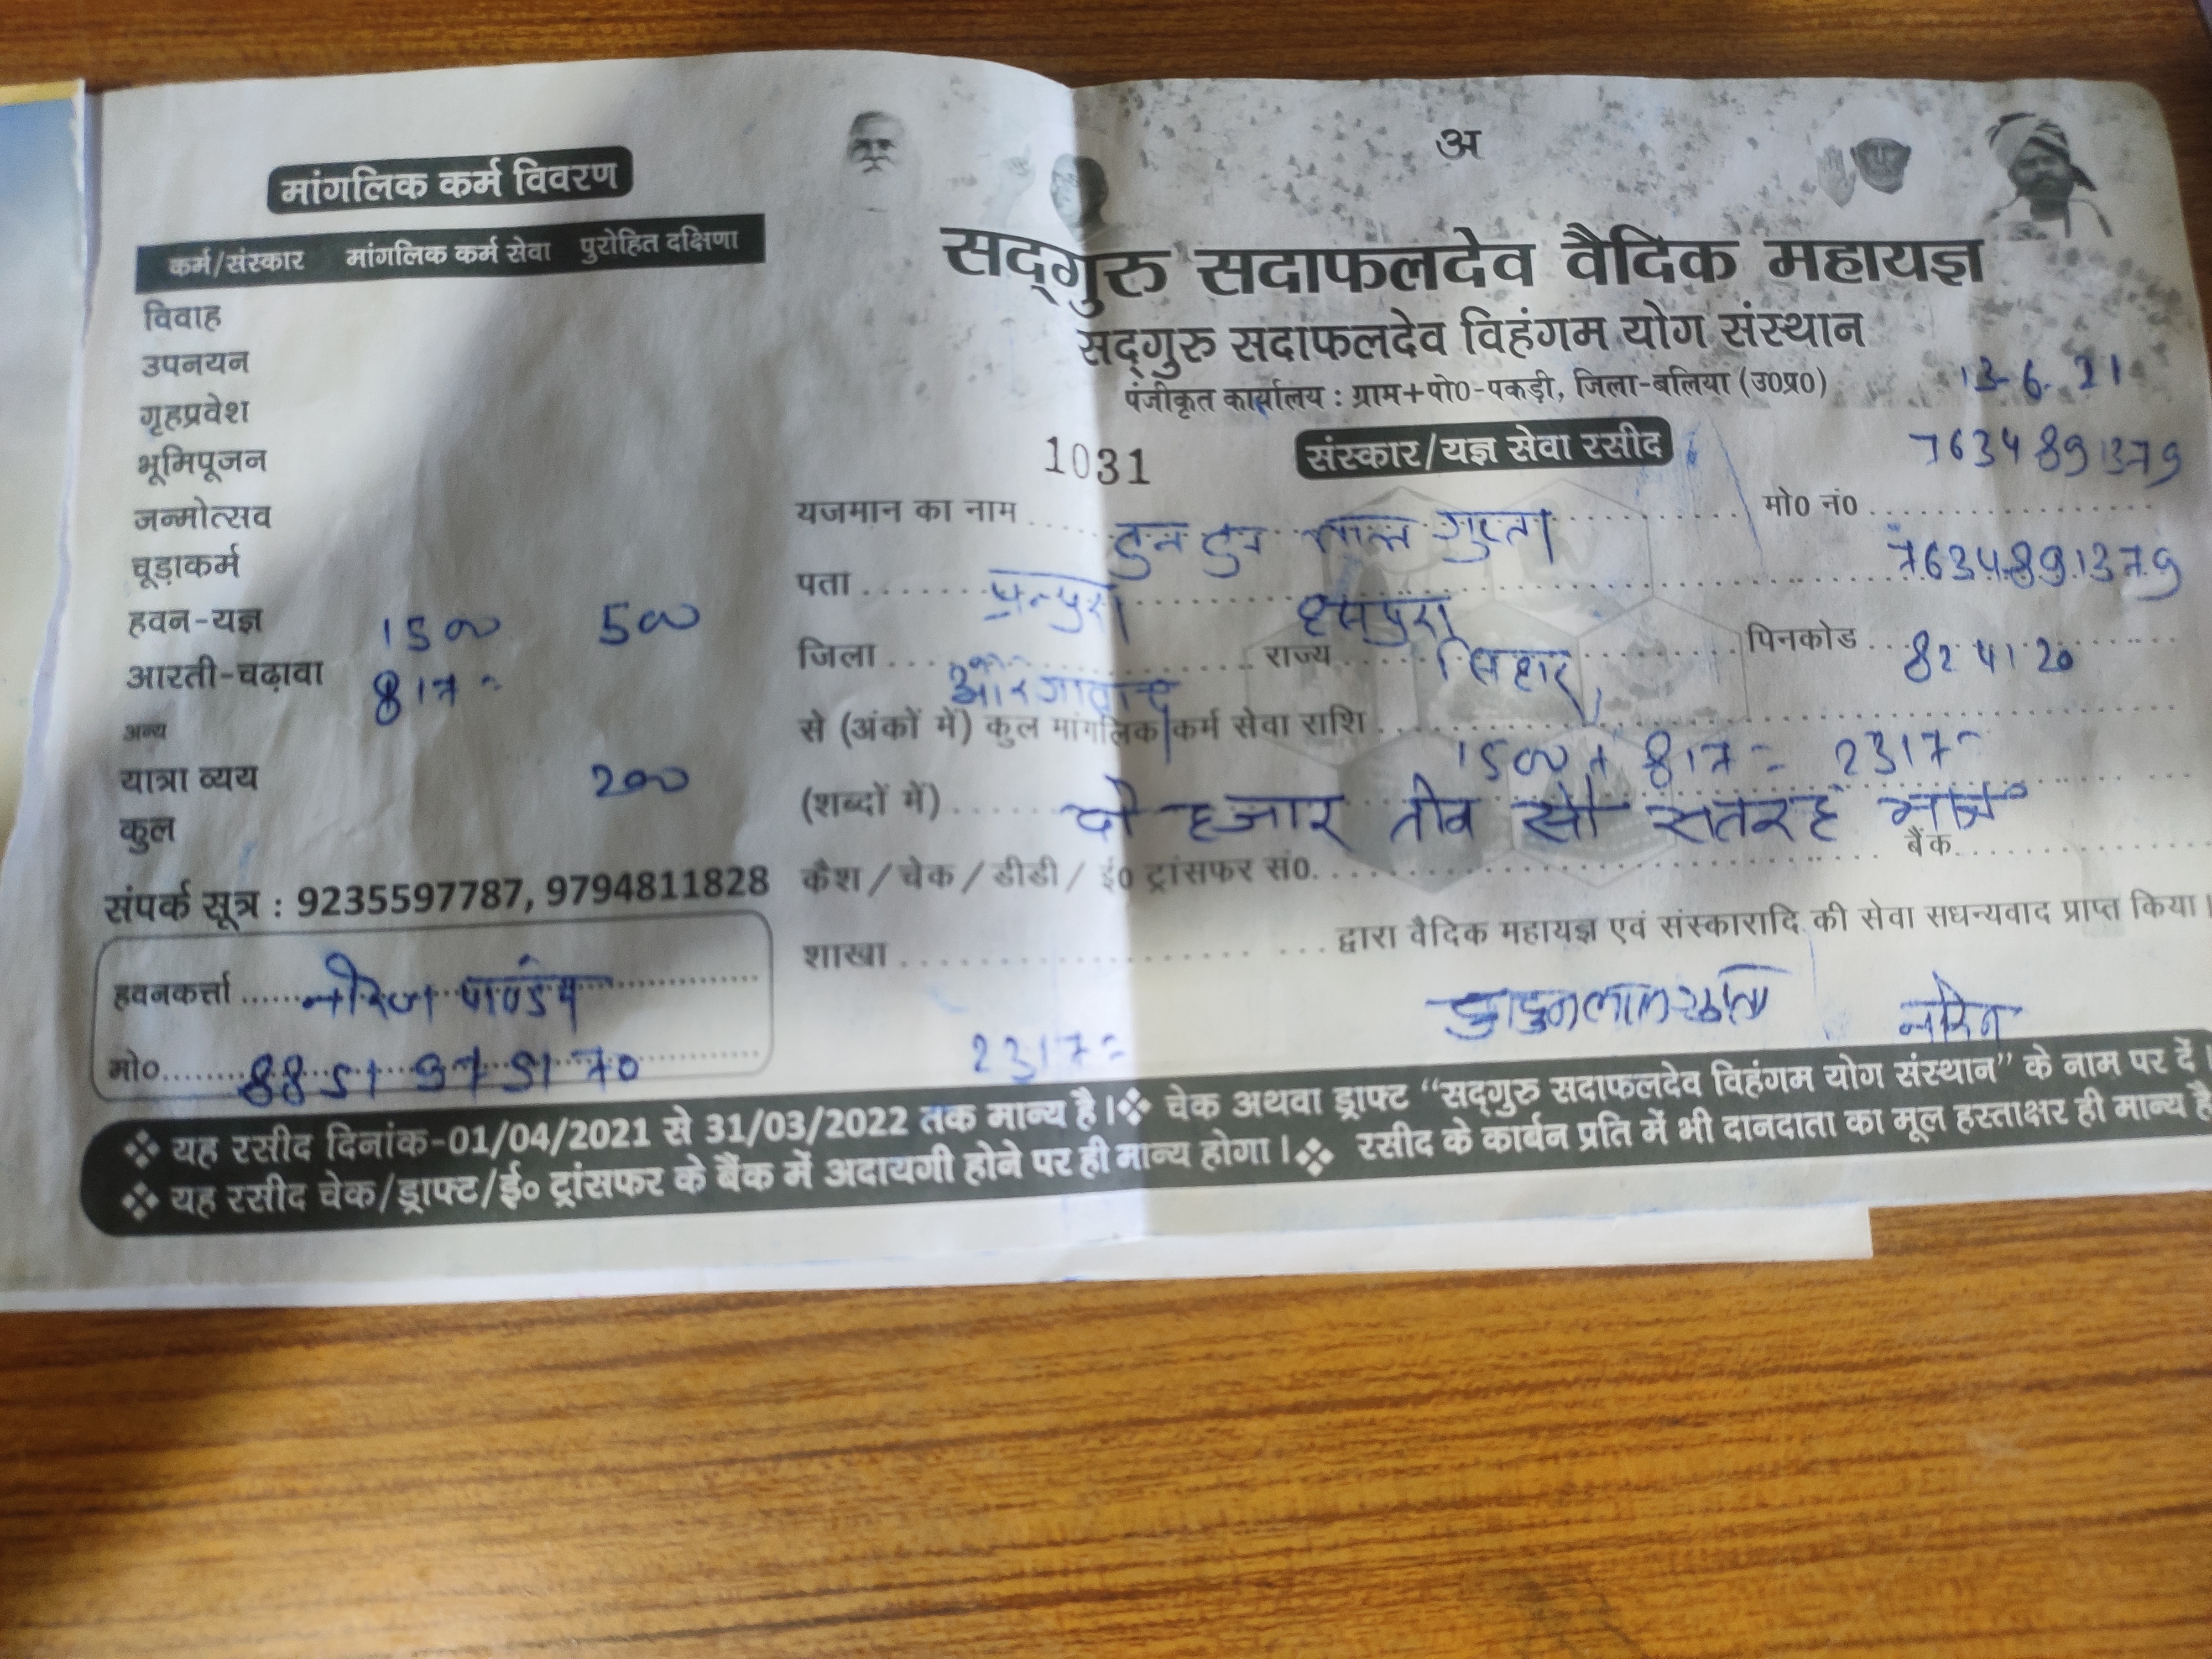 मांगलिक कर्म विवरण
कर्म/संस्कार मांगलिक कर्म सेवा पुरोहित दक्षिणा
विवाह
उपनयन
गृहप्रवेश
भूमिपूजन
जन्मोत्सव
चूड़ाकर्म
हवन-यज्ञ 1500 500
आरती-चढ़ावा 817=
अन्य
यात्रा व्यय 200
कुल
संपर्क सूत्र : 9235597787, 9794811828
हवनकर्त्ता ...... नीरज पाण्डेय
मो०........ 8851975170
अ
सद्गुरु सदाफलदेव वैदिक महायज्ञ
सद्गुरु सदाफलदेव विहंगम योग संस्थान
पंजीकृत कार्यालय : ग्राम+पो०-पकड़ी, जिला-बलिया (उ०प्र०)
13-6-21
1031 संस्कार/यज्ञ सेवा रसीद 7634891379
यजमान का नाम .... टुन टुन लाल गुप्ता मो० नं० ....
पता .... हसपुरा 7634891379
जिला .... औरंगाबाद राज्य .... बिहार पिनकोड ... 824120
से (अंकों में) कुल मांगलिक कर्म सेवा राशि .... 1500 + 817 = 2317=
(शब्दों में) .... दो हजार तीन सौ सतरह मात्र
कैश / चेक / डीडी / ई० ट्रांसफर सं०.... बैंक....
शाखा .... द्वारा वैदिक महायज्ञ एवं संस्कारादि की सेवा सधन्यवाद प्राप्त किया।
2317=
❖ यह रसीद दिनांक-01/04/2021 से 31/03/2022 तक मान्य है।❖ चेक अथवा ड्राफ्ट “सद्गुरु सदाफलदेव विहंगम योग संस्थान” के नाम पर दें।
❖ यह रसीद चेक/ड्राफ्ट/ई० ट्रांसफर के बैंक में अदायगी होने पर ही मान्य होगा।❖ रसीद के कार्बन प्रति में भी दानदाता का मूल हस्ताक्षर ही मान्य है